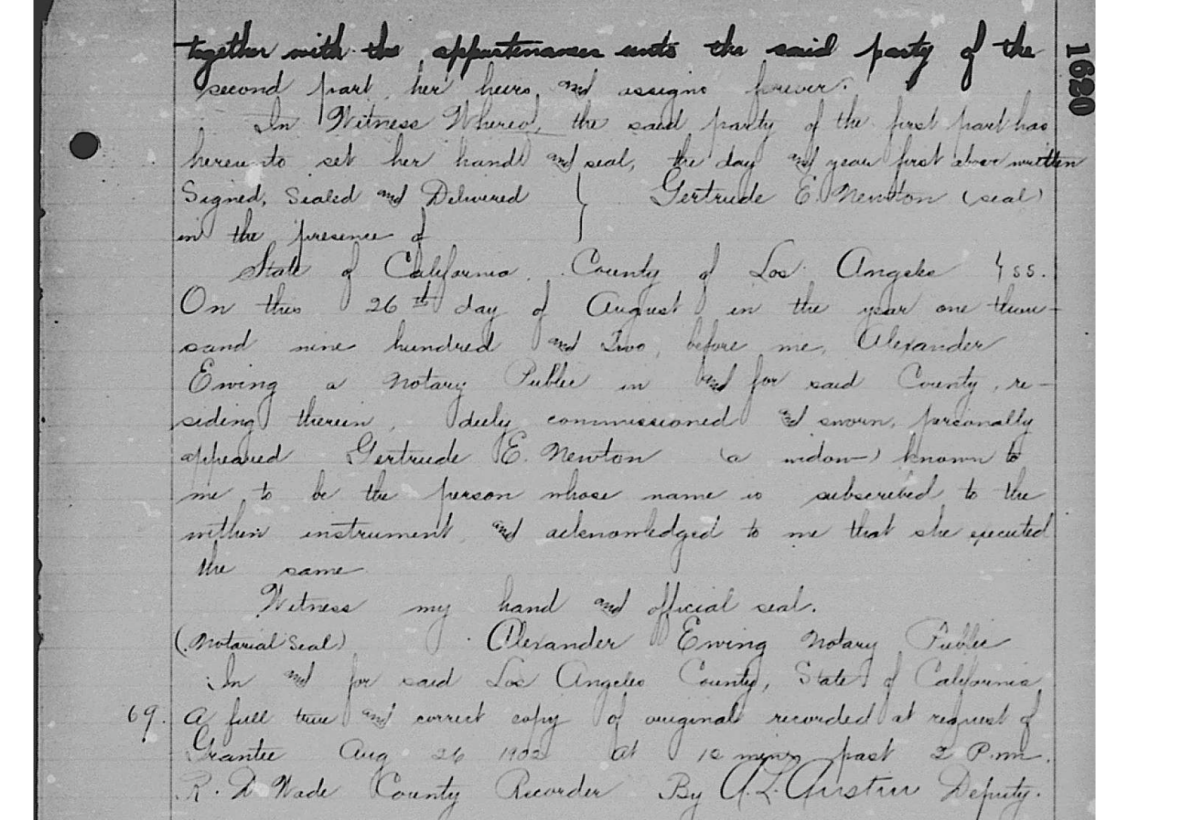 together with the appurtenances unto the said party of the
1620
second part, her heirs, and assigns forever.
In Witness Whereof, the said party of the first part has
hereunto set her hand and seal, the day and year first above written
Signed, Sealed and Delivered } Gertrude E. Newton (seal)
in the presence of
State of California. County of Los Angeles } ss.
On this 26th day of August in the year one thou-
sand nine hundred and Two, before me, Alexander
Ewing a Notary Public in and for said County, re-
siding therein, duly commissioned and sworn, personally
appeared Gertrude E. Newton (a widow) known to
me to be the person whose name is subscribed to the
within instrument, and acknowledged to me that she executed
the same
Witness my hand and official seal.
(Notarial Seal) Alexander Ewing Notary Public
In and for said Los Angeles County, State of California
69. A full true and correct copy of original recorded at request of
Grantee Aug 26 1902 at mins past 2 P.m.
R. D Wade County Recorder By A. L. Austin Deputy.